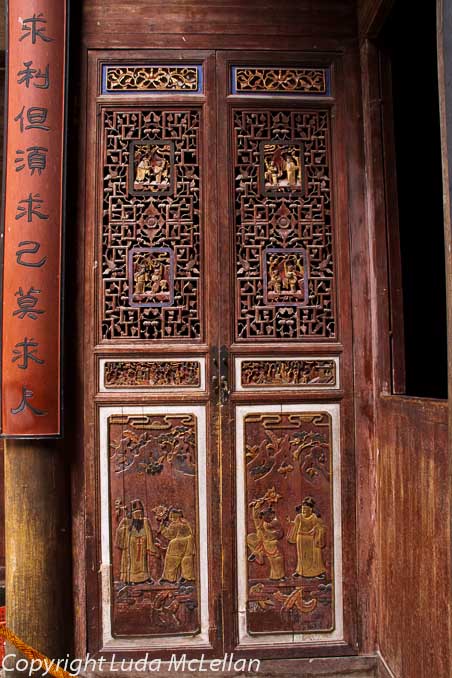 求
求利但須求己莫求人
Copyright Luda McLellan